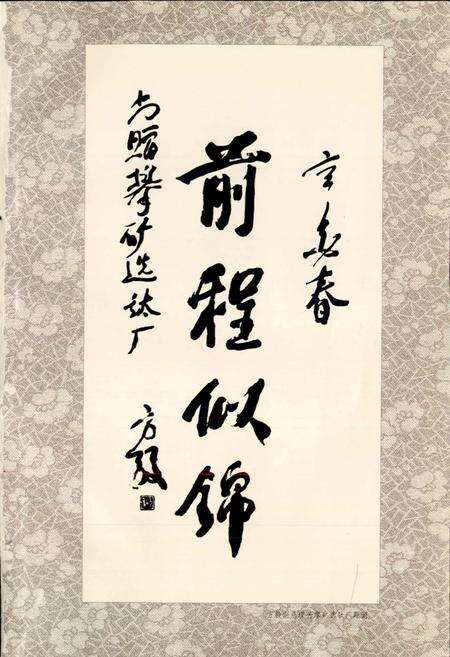 辛未春
前程似錦
书赠攀矿选钛厂
方毅